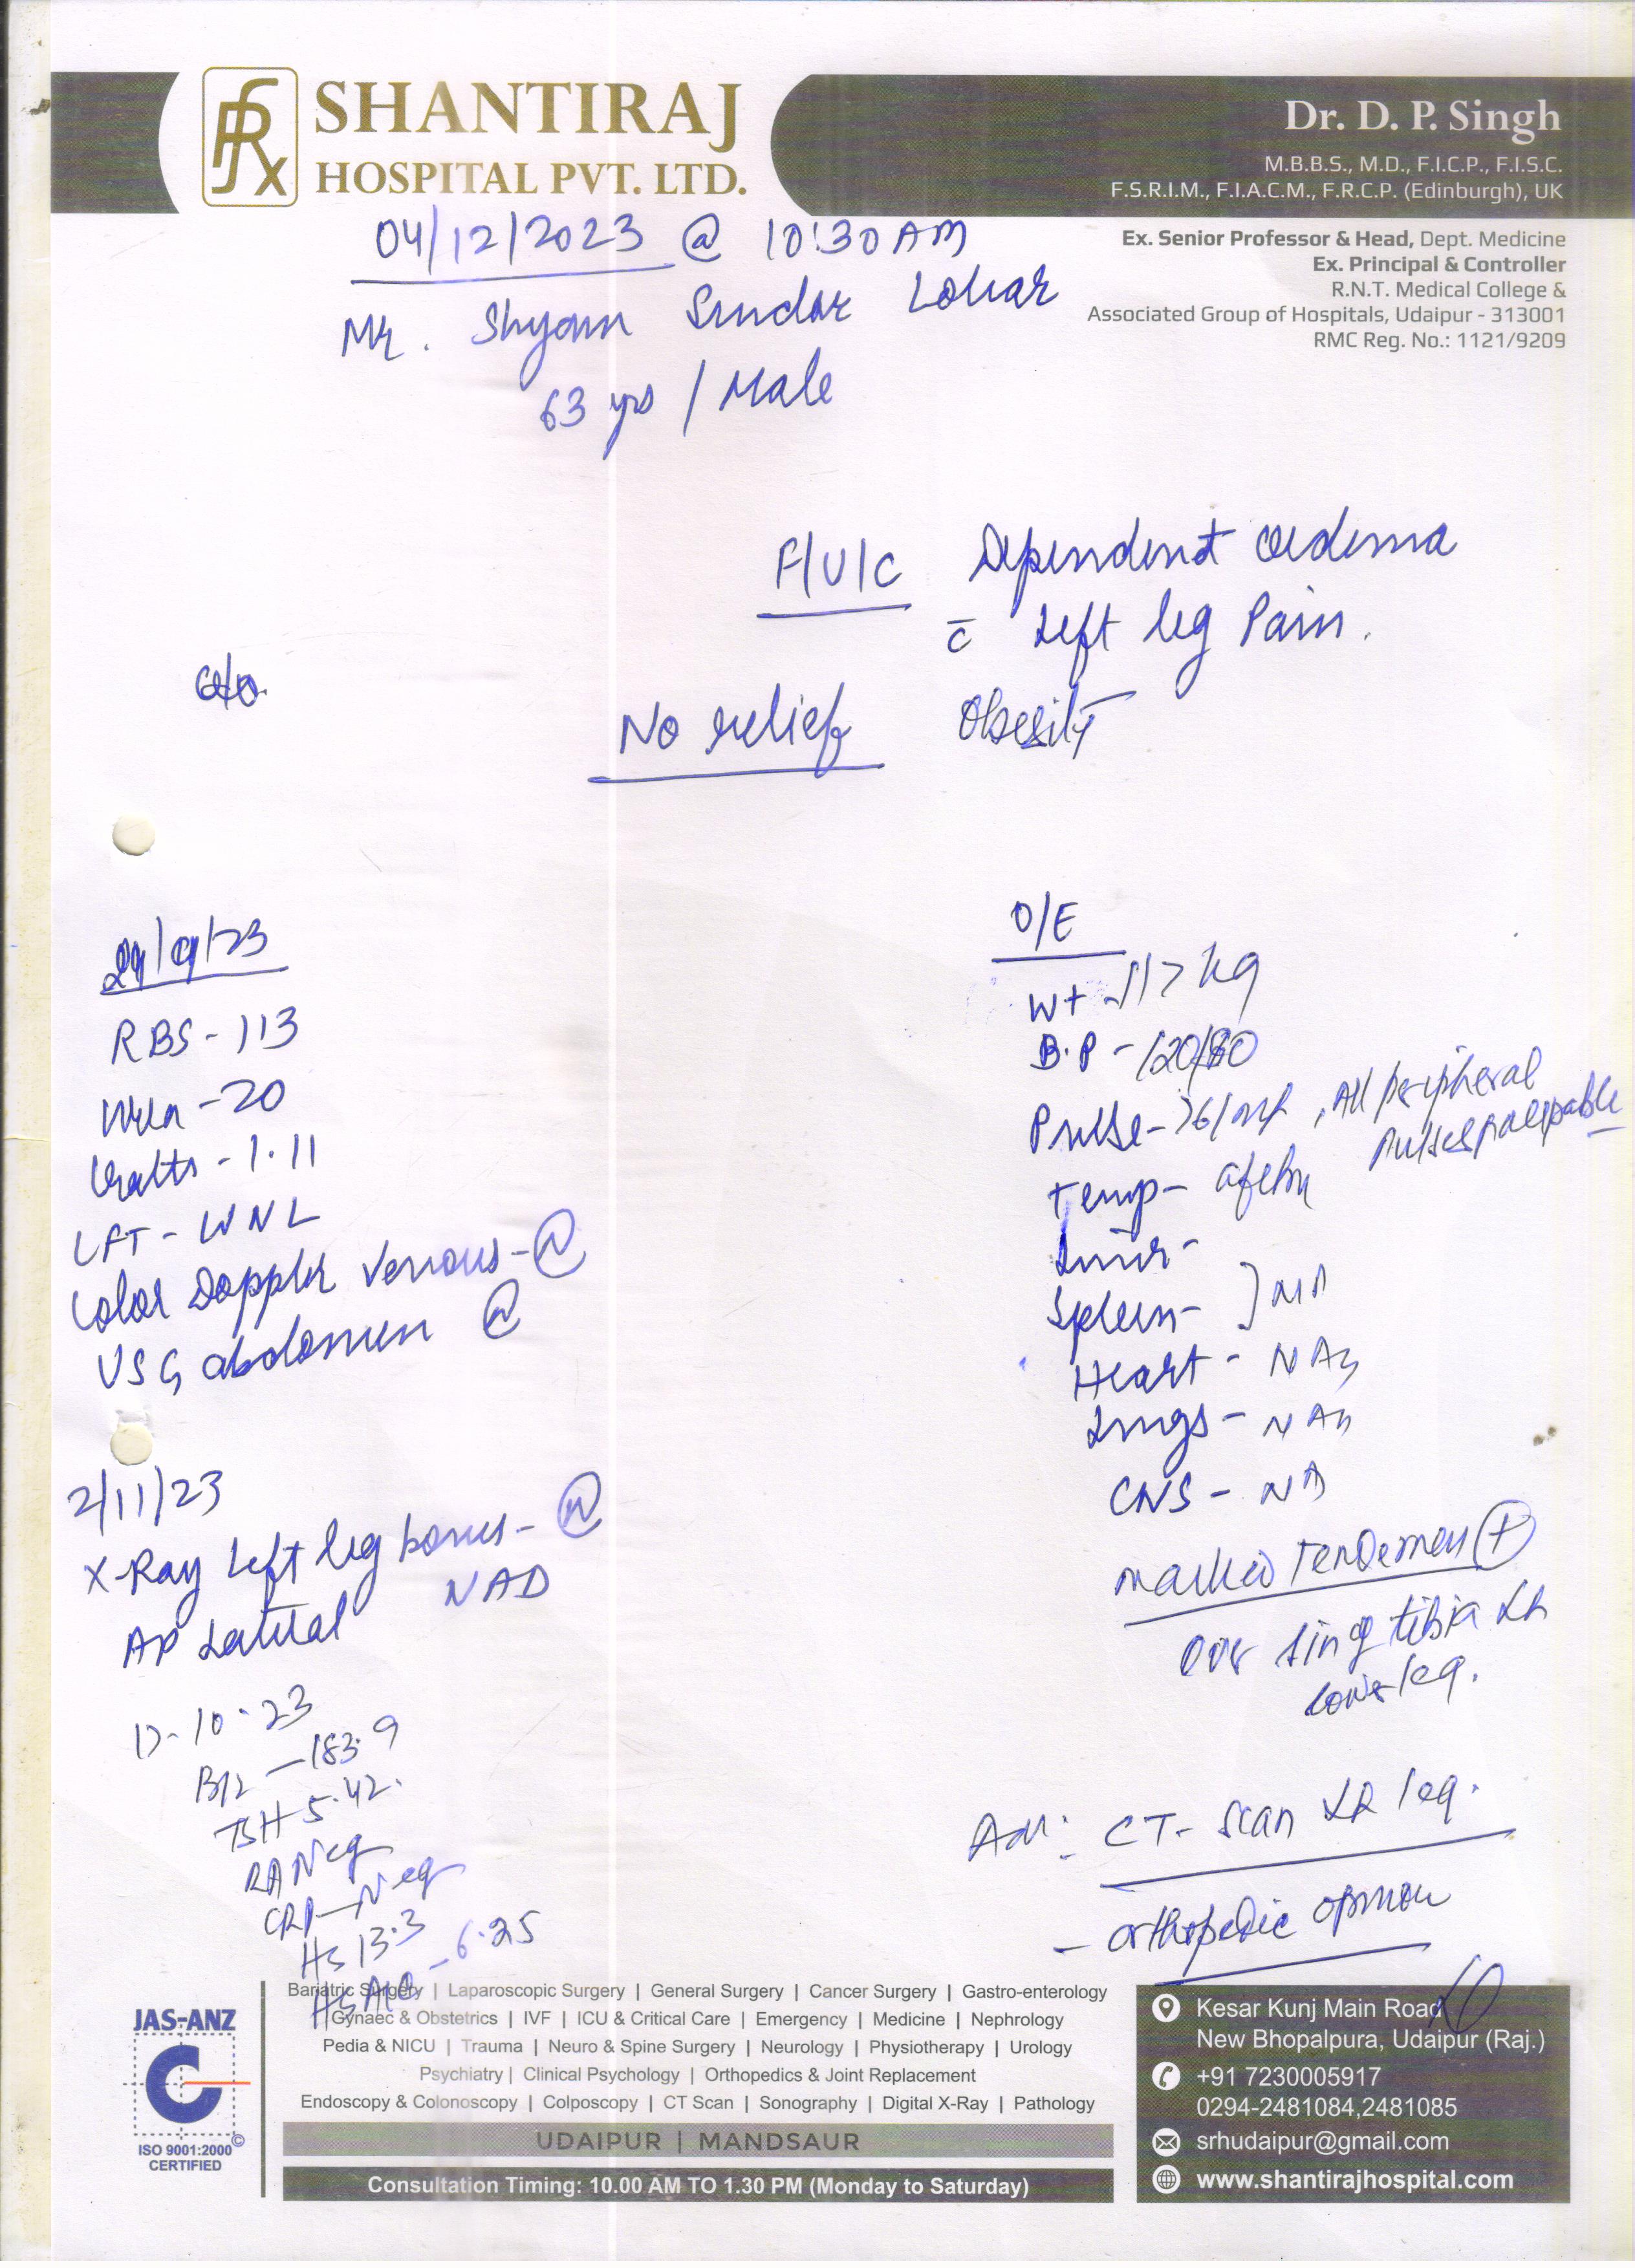 SHANTIRAJ
HOSPITAL PVT. LTD.
Dr. D. P. Singh
M.B.B.S., M.D., F.I.C.P., F.I.S.C.
F.S.R.I.M., F.I.A.C.M., F.R.C.P. (Edinburgh), UK
Ex. Senior Professor & Head, Dept. Medicine
Ex. Principal & Controller
R.N.T. Medical College &
Associated Group of Hospitals, Udaipur - 313001
RMC Reg. No.: 1121/9209
04/12/2023 @ 10:30 AM
Mr. Shyam Sundar Lohar
63 yrs / Male
F/U/C Dependent oedema
c̄ Left leg Pain.
c/o
No relief Obesity
/9/23
RBS - 113
Urea - 20
- 1.11
LFT - WNL
Color Doppler Venous - Ⓝ
USG abdomen Ⓝ
2/11/23
X-Ray Left leg bones - Ⓝ
AP Lateral NAD
17-10-23
B12 - 183.9
TSH 5.42.
RA Neg
CRP - Neg
Hb 13.3
Hb A1C - 6.25
O/E
Wt - 117 kg
B.P - 120/80
Pulse - 76/mt, All peripheral
Pulses palpable
Temp - afebri
Liver -
Spleen - } NP
Heart - NAD
Lungs - NAD
CNS - NAD
Marked Tenderness ⊕
Over Tibia Lt
Lower leg.
Adv: CT- Scan Lt leg.
- orthopedic opinion
Bariatric Surgery | Laparoscopic Surgery | General Surgery | Cancer Surgery | Gastro-enterology
Gynaec & Obstetrics | IVF | ICU & Critical Care | Emergency | Medicine | Nephrology
Pedia & NICU | Trauma | Neuro & Spine Surgery | Neurology | Physiotherapy | Urology
Psychiatry | Clinical Psychology | Orthopedics & Joint Replacement
Endoscopy & Colonoscopy | Colposcopy | CT Scan | Sonography | Digital X-Ray | Pathology
UDAIPUR | MANDSAUR
Consultation Timing: 10.00 AM TO 1.30 PM (Monday to Saturday)
JAS-ANZ
ISO 9001:2000
CERTIFIED
Kesar Kunj Main Road
New Bhopalpura, Udaipur (Raj.)
+91 7230005917
0294-2481084,2481085
srhudaipur@gmail.com
www.shantirajhospital.com